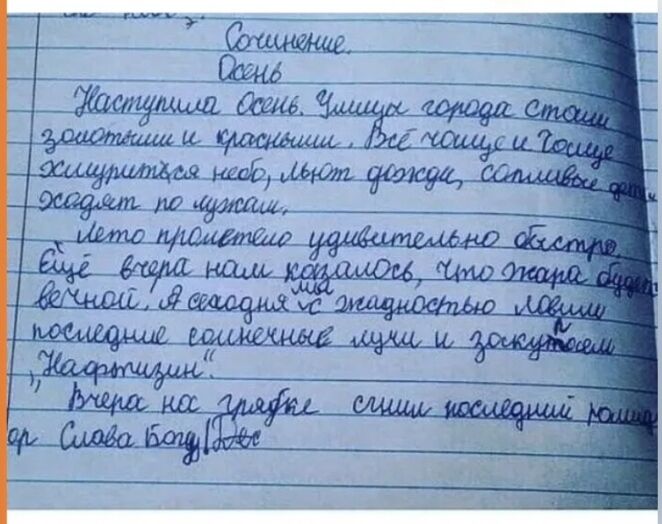 Сочинение.
Осень
Наступила Осень. Улицы города стали
золотыми и красными. Всё чаще и чаще
жмуриться небо, льют дожди, сопливые дети
ходят по лужам.
Лето пролетело удивительно быстро
Ещё вчера нам казалось, что жара будет
вечной. А сегодня мы с жадностью ловим
последние солнечные лучи и закупаем
„Нафтизин“.
Вчера на грядке сгнил последний помид
ор Слава Богу!